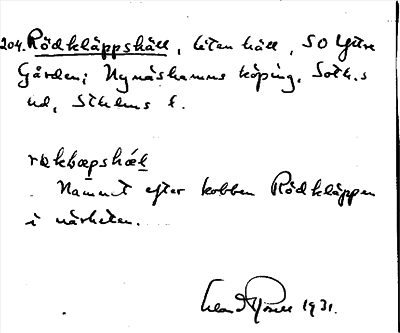 204. Rödkläppshäll, liten häll, SO Yttre
Gården; Nynäshamns köping, Sotholms
hd, Sthlms l.
Namnet efter kobben Rödkläppen
i närheten.
1931.